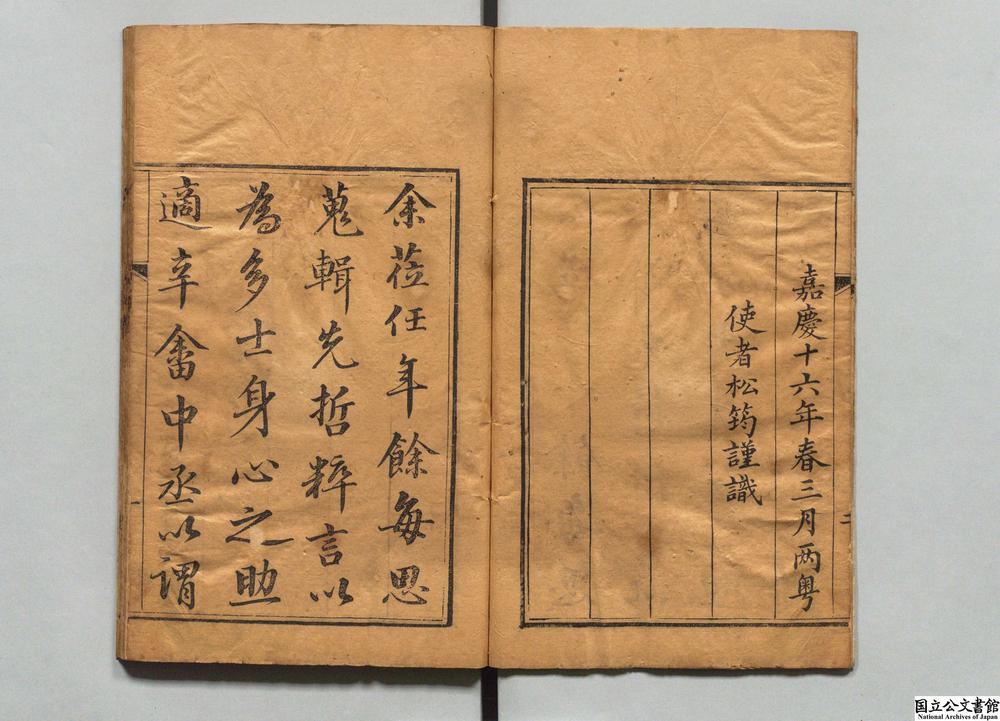 嘉慶十六年春三月两粤
使者松筠謹識
二
余莅任年餘每思
蒐輯先哲粹言以
為多士身心之助
適辛畬中丞以謂
一
国立公文書館
National Archives of Japan